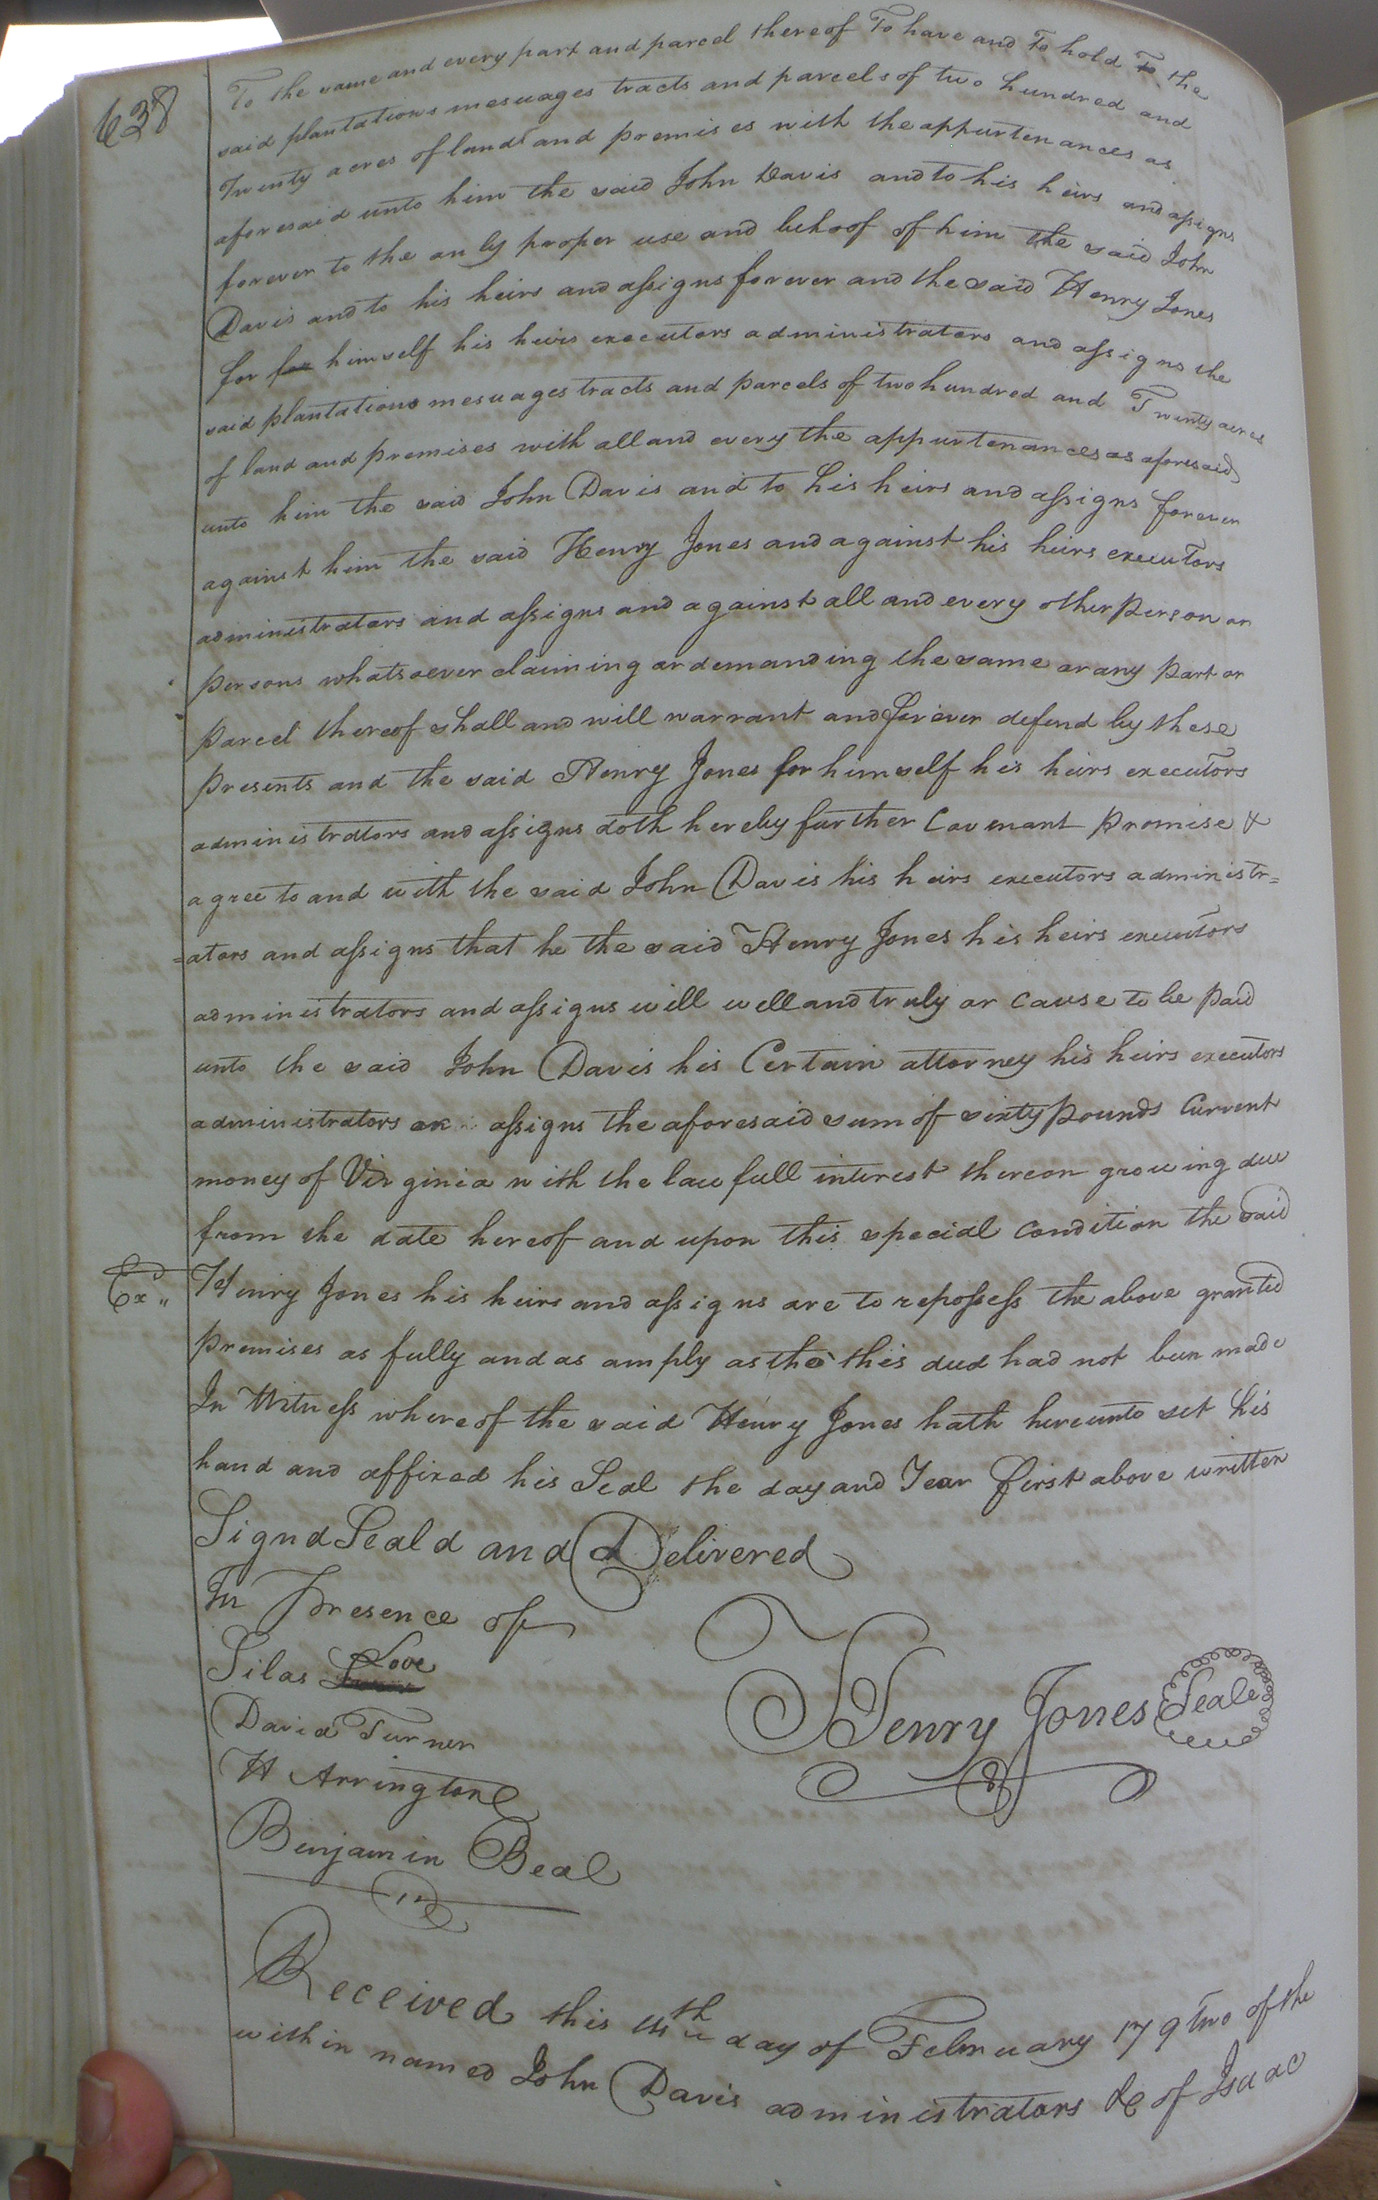 638
To the same and every part and parcel thereof To have and To hold To the
said plantations mesuages tracts and parcels of two hundred and
Twenty acres of land and premises with the appurtenances as
aforesaid unto him the said John Davis and to his heirs and assigns
forever to the only proper use and behoof of him the said John
Davis and to his heirs and assigns forever and the said Henry Jones
for for himself his heirs executors administrators and assigns the
said plantations mesuages tracts and parcels of two hundred and Twenty acres
of land and premises with all and every the appurtenances as aforesaid
unto him the said John Davis and to his heirs and assigns forever
against him the said Henry Jones and against his heirs executors
administrators and assigns and against all and every other person or
persons whatsoever claiming or demanding the same or any part or
parcel thereof shall and will warrant and forever defend by these
presents and the said Henry Jones for himself his heirs executors
administrators and assigns doth hereby further Covenant promise &
agree to and with the said John Davis his heirs executors administr=
=ators and assigns that he the said Henry Jones his heirs executors
administrators and assigns will well and truly or cause to be paid
unto the said John Davis his Certain attorney his heirs executors
administrators or assigns the aforesaid sum of sixty pounds Current
money of Virginia with the lawfull interest thereon growing due
from the date hereof and upon this special condition the said
Exd Henry Jones his heirs and assigns are to repossess the above granted
premises as fully and as amply as tho this deed had not been made
In Witness whereof the said Henry Jones hath hereunto set his
hand and affixed his Seal the day and Year first above written
Signd Seald and Delivered
In Presence of
Silas Love
David Turner
H Arrington
Benjamin Beal
Henry Jones Seale
Received this day of February 179two of the
within named John Davis administrators &c of Isaac